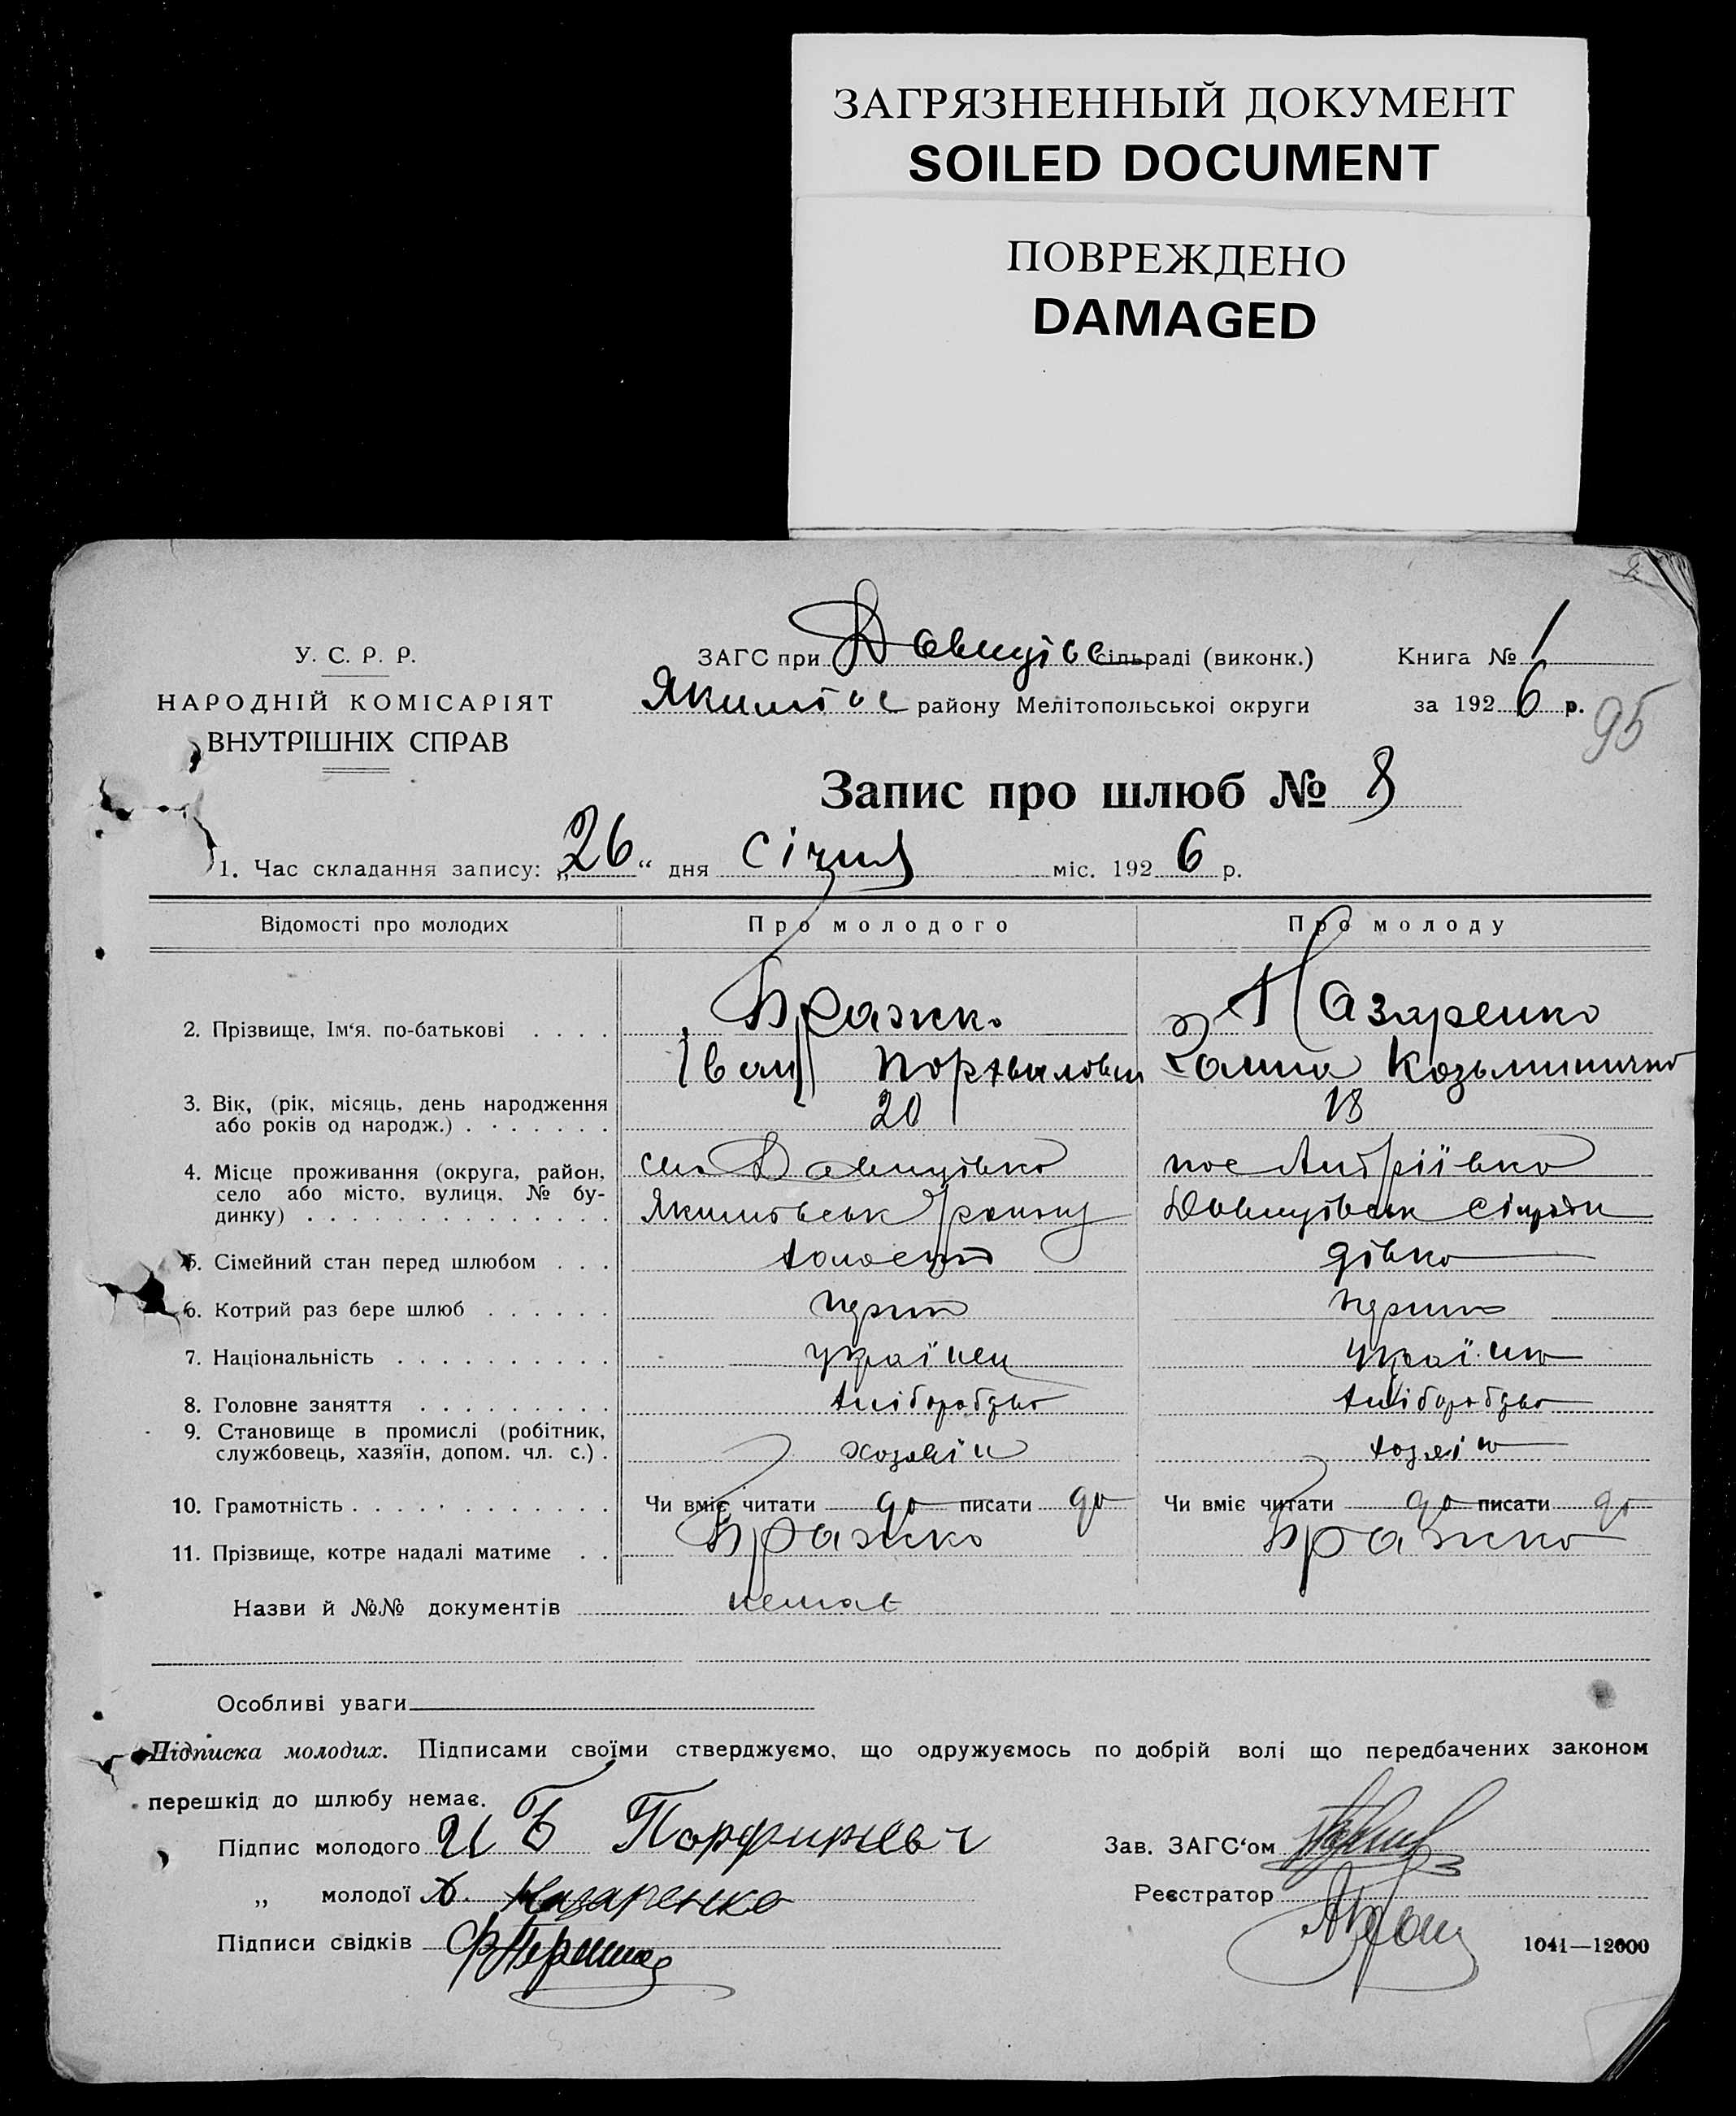 ЗАГРЯЗНЕННЫЙ ДОКУМЕНТ
SOILED DOCUMENT
ПОВРЕЖДЕНО
DAMAGED
У. С. Р. Р.
НАРОДНІЙ КОМІСАРІЯТ
ВНУТРІШНІХ СПРАВ
ЗАГС при сільраді (виконк.)
району Мелітопольської округи
Книга № 1
за 1926 р.
95
Запис про шлюб № 8
1. Час складання запису: „26“ дня січня міс. 1926 р.
Відомості про молодих Про молодого Про молоду
2. Прізвище, Ім‘я, по-батькові . . . . Бражко Назаренко
Іван Галина
3. Вік, (рік, місяць, день народження
або років од народж.) . . . . . . . 20 18
4. Місце проживання (округа, район, село Давидівка пос Андріївка
село або місто, вулиця, № бу-
динку) . . . . . . . . . . . . . . Якимовськ району Давидівськ сільради
5. Сімейний стан перед шлюбом . . . холостий дівка
6. Котрий раз бере шлюб . . . . . .
7. Національність . . . . . . . . . . українец
8. Головне заняття . . . . . . . . . хліборобство хліборобство
9. Становище в промислі (робітник,
службовець, хазяїн, допом. чл. с.) . хозяїн
10. Грамотність . . . . . . . . . . . . Чи вміє читати до писати до Чи вміє читати до писати до
11. Прізвище, котре надалі матиме . . Бражко Бражко
Назви й №№ документів немає
Особливі уваги
Підписка молодих. Підписами своїми стверджуємо, що одружуємось по добрій волі що передбачених законом
перешкід до шлюбу немає.
Підпис молодого И Б Порфириевч
Зав. ЗАГС‘ом
„ молодої Назаренко
Реєстратор
Підписи свідків
1041—12000